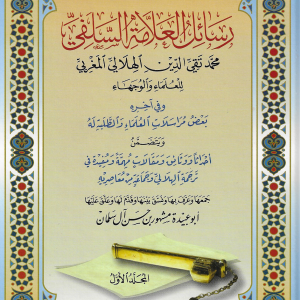 رسائل العلامة السلفي
محمد تقي الدين الهلالي المغربي
للعلماء والوجهاء
وفي آخره
بعض مراسلات العلماء والطلبة له
ويتضمن
أحداثا ووثائق ومقالات مهمة ومفيدة في
ترجمة الهلالي وجماعة من معاصريه
جمعها وعرف بها ونسق بينها وقدم لها وعلق عليها
أبو عبيدة مشهور بن حسن آل سلمان
المجلد الأول